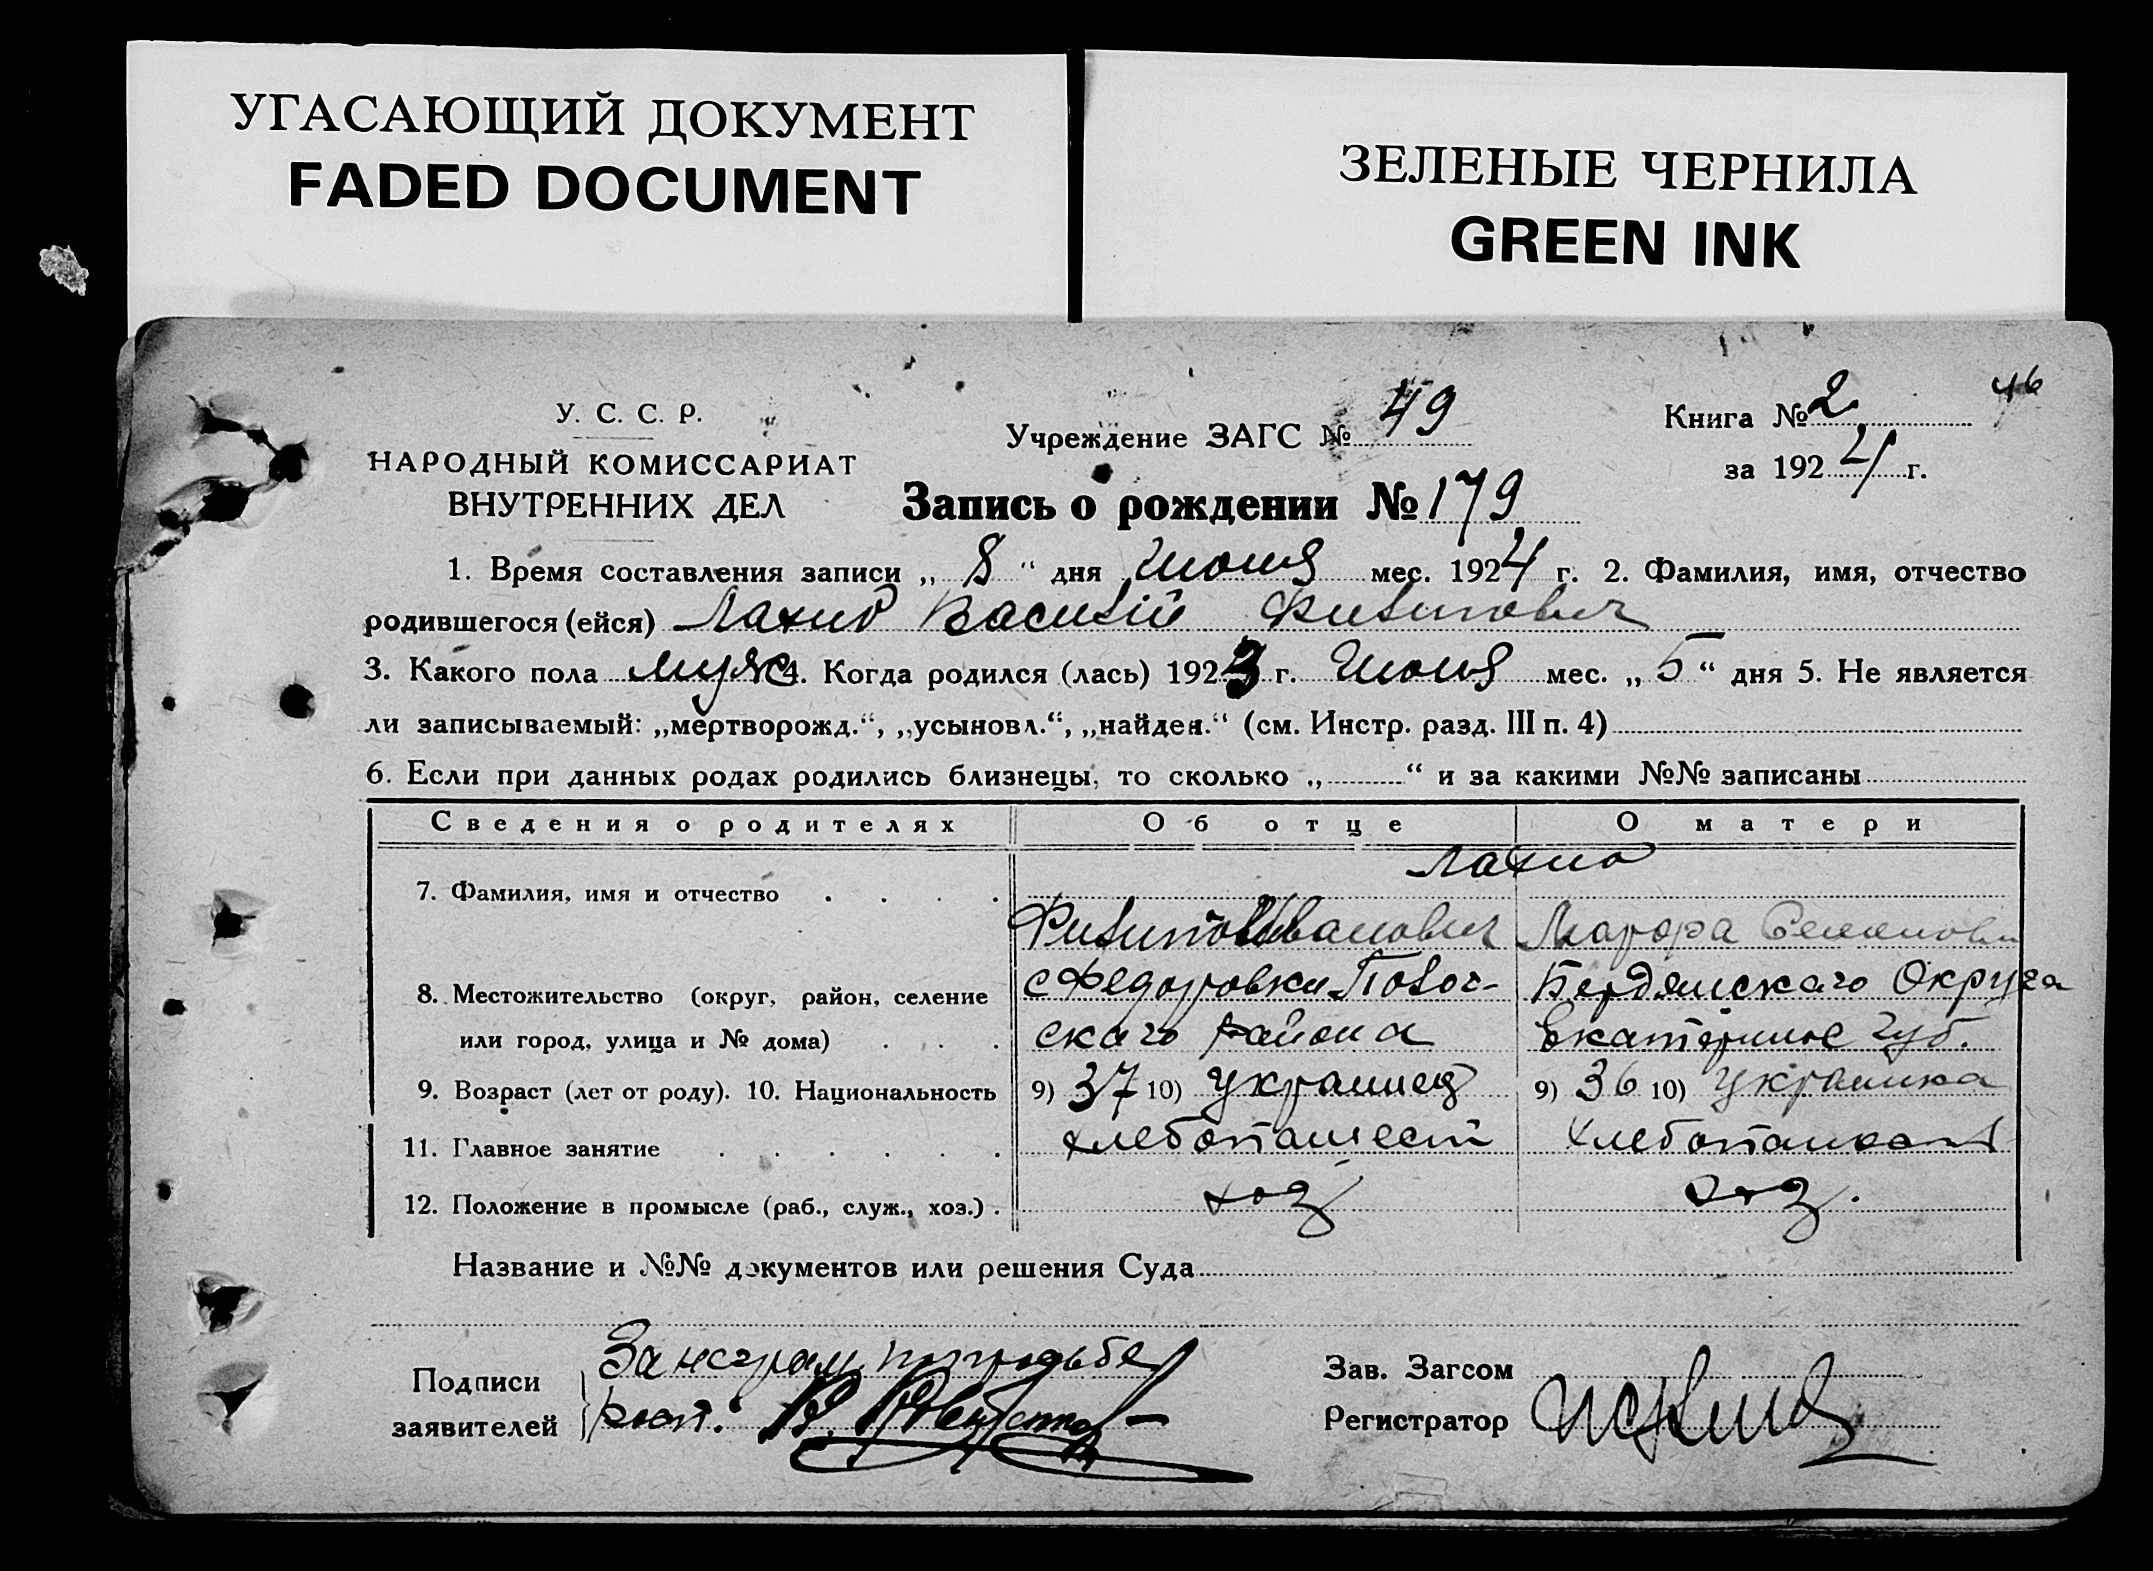 УГАСАЮЩИЙ ДОКУМЕНТ
FADED DOCUMENT
ЗЕЛЕНЫЕ ЧЕРНИЛА
GREEN INK
46
У. С. С. Р.
НАРОДНЫЙ КОМИССАРИАТ
ВНУТРЕННИХ ДЕЛ
Учреждение ЗАГС № 49
Книга № 2
за 1924 г.
Запись о рождении № 179
1. Время составления записи „ 8 “ дня Июня мес. 1924 г. 2. Фамилия, имя, отчество
родившегося (ейся) Лахно Василій Филипович
3. Какого пола муж 4. Когда родился (лась) 1923 г. Июня мес. „ 5 “ дня 5. Не является
ли записываемый: „мертворожд.“, „усыновл.“, „найден.“ (см. Инстр. разд. III п. 4)
6. Если при данных родах родились близнецы, то сколько „ “ и за какими №№ записаны
Сведения о родителях Об отце О матери
Лахно
7. Фамилия, имя и отчество
Филипов Иванович Марфа Семеновн
8. Местожительство (округ, район, селение с Федоровки Полог- Бердянскаго Округа
или город, улица и № дома) скаго района Екатеринос губ.
9. Возраст (лет от роду). 10. Национальность 9) 37 10) украинец 9) 36 10) украинка
11. Главное занятие хлебопашест
12. Положение в промысле (раб., служ., хоз.) хоз хоз.
Название и №№ документов или решения Суда
Подписи
заявителей
За неграм. по просьбе
росп.
Зав. Загсом
Регистратор